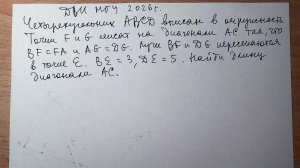 ДВИ МГУ 2026г.
Четырехугольник ABCD вписан в окружность.
Точки F и G лежат на диагонали AC так, что
BF = FA и AG = DG. Лучи BF и DG пересекаются
в точке E. BE = 3, DE = 5. Найти длину
диагонали AC.